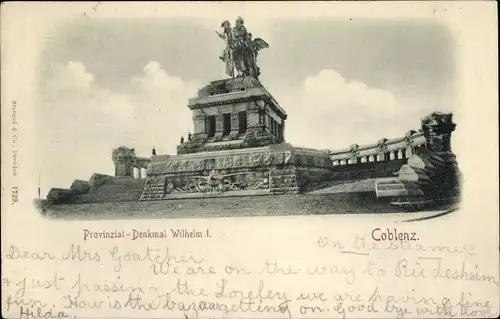 Provinzial-Denkmal Wilhelm I.
Coblenz.
Stengel & Co., Dresden 1729.
On the steamer
Dear Mrs Gatcher
We are on the way to Rüdesheim
& just passing the Loreley we are having fine
fun. How is the bazaar getting on. Good bye with love
Hilda.